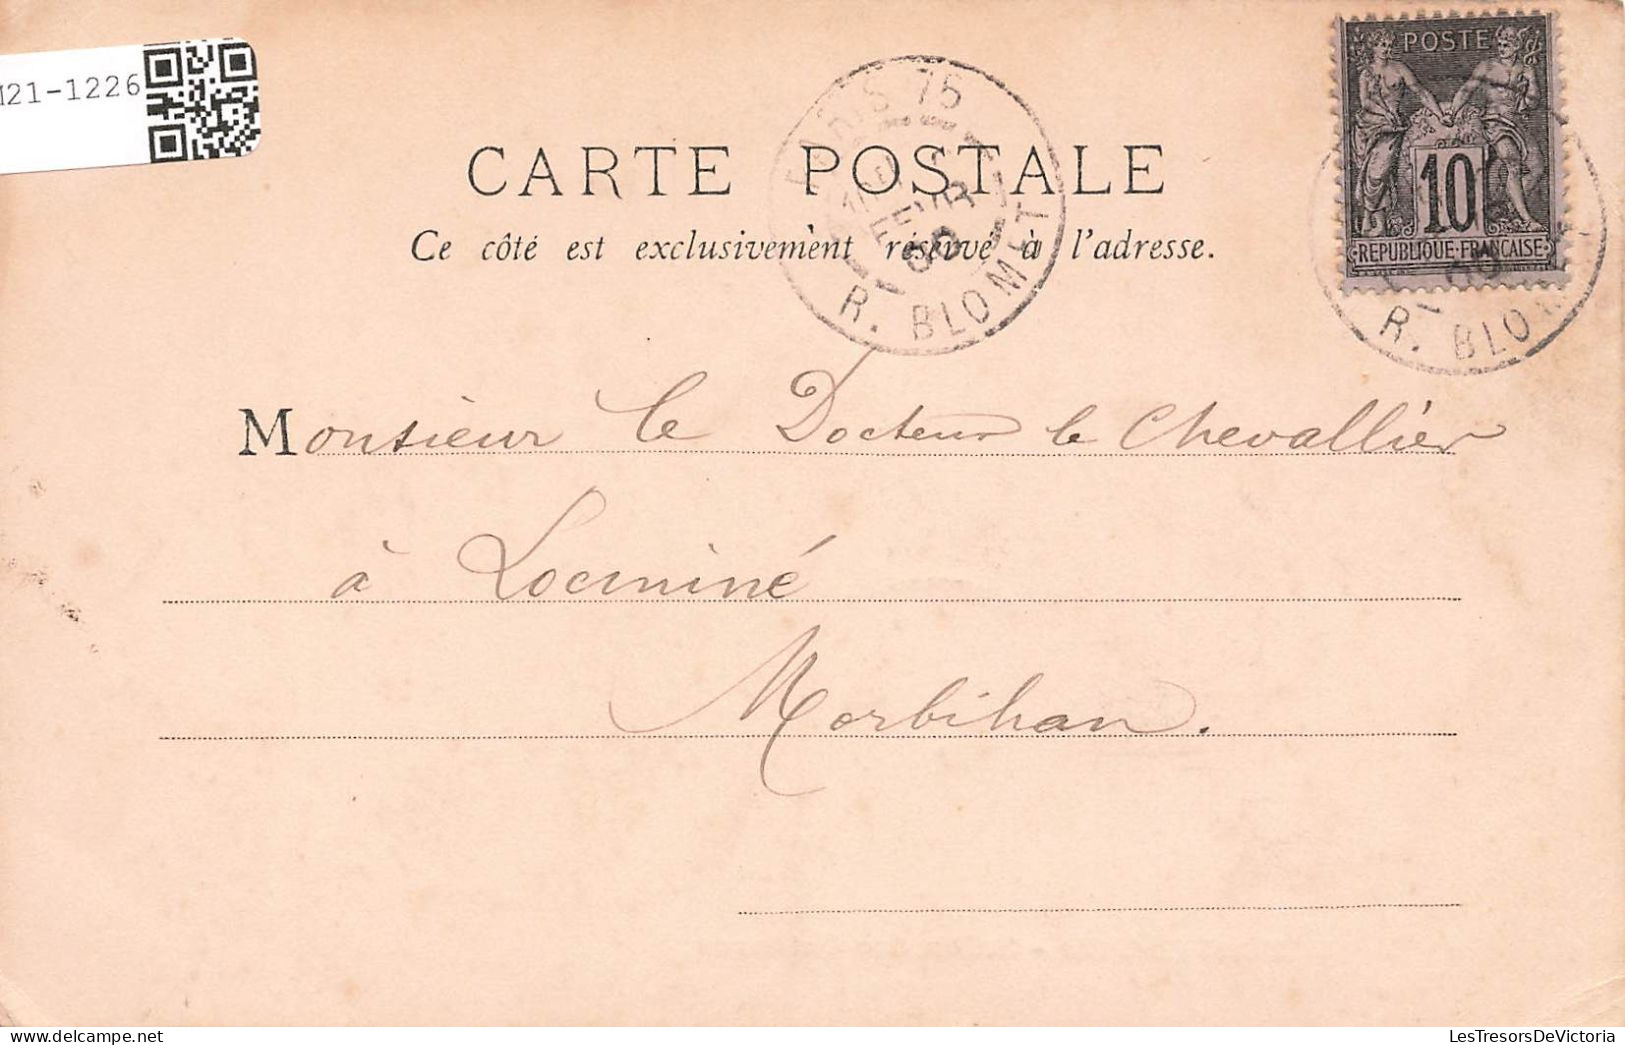 21-1226
POSTE
10
REPUBLIQUE FRANCAISE
PARIS 75
FEVR
00
R. BLOMET
R. BLOM
00
CARTE POSTALE
Ce côté est exclusivement réservé à l'adresse.
Monsieur le Docteur le Chevallier
à Locminé
Morbihan.
LesTresorsDeVictoria